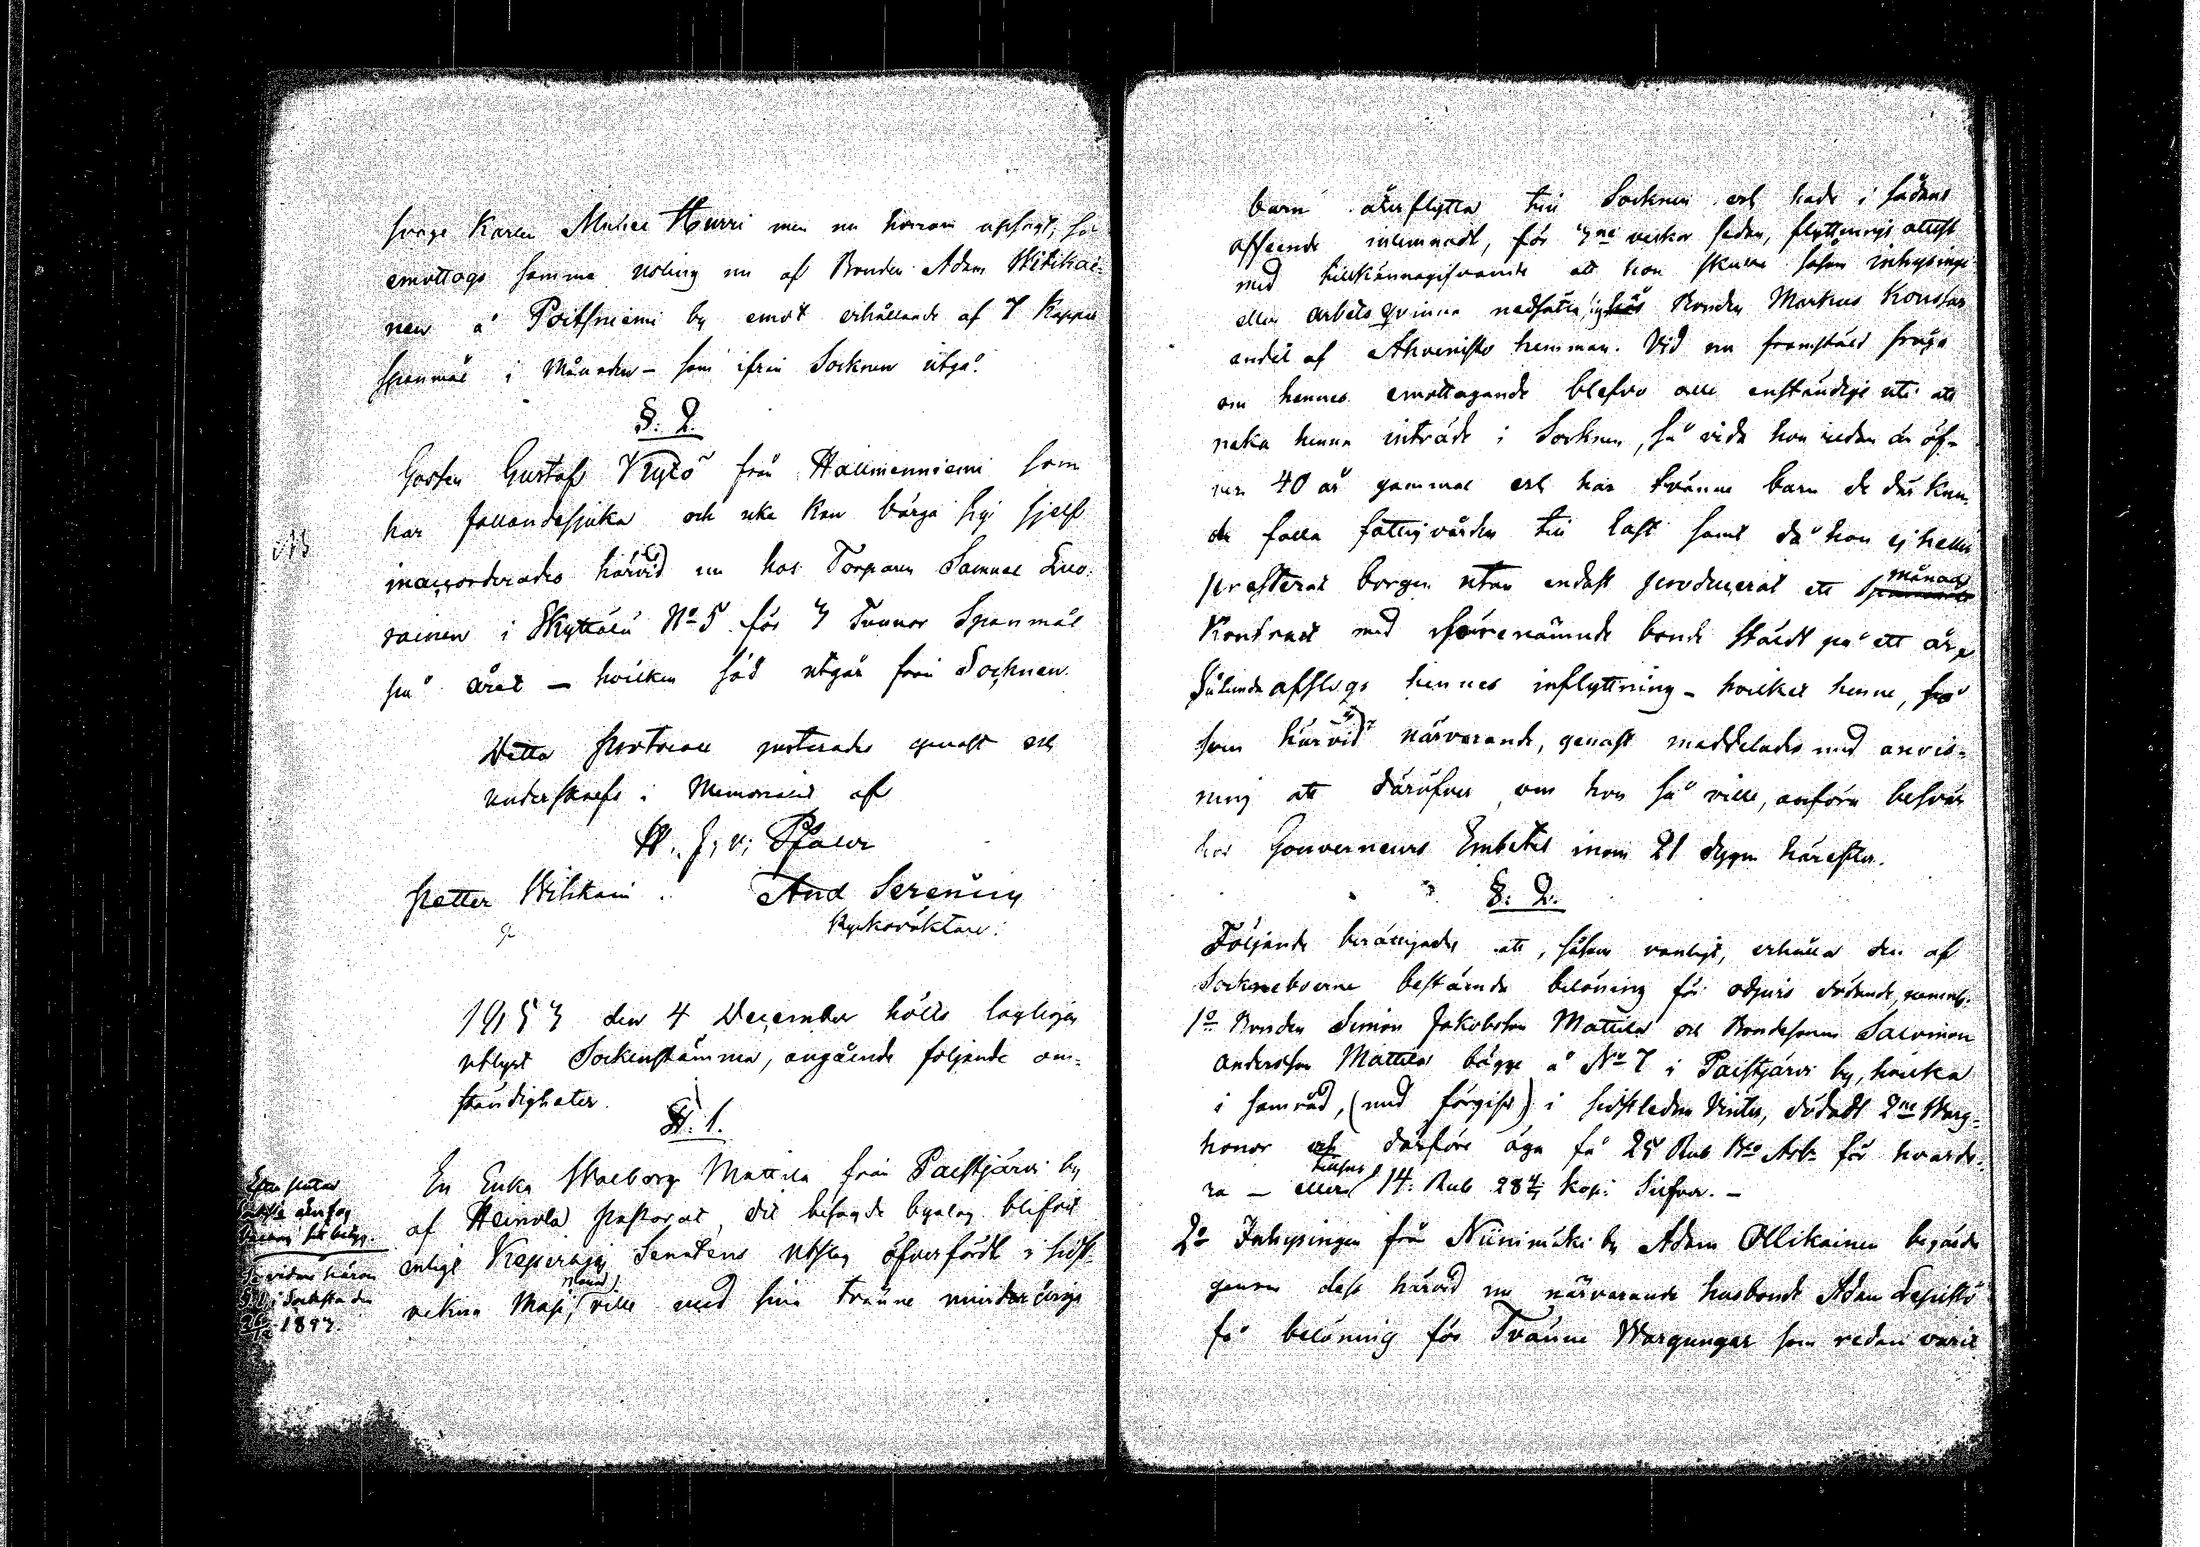 svage Karln Michel Hurri men nu honom upsagt, så
emottogs samma yngling nu af Bonden Adam Wilikai-
nen å Poitsniemi by emot erhållande af 7 Kappar
spanmål i Månaden – som ifrån Socknen utgå.
§. 2.
Gossen Gustaf Kytö från Hallmenniemi som
har fallandesjuka och icke kan bärga sig sjelf
NB
inaccorderades härvid nu hos Torparn Samuel Suo-
rainen i Skyttälä No 5 för 3 Tunnor Spanmål
på året – hvilken säd utgår från Socknen.
Detta protocoll justerades genast och
underskrefs i Memorialet af
H. J. v. Pfaler
Petter Wilskain And Serenius
Kyrkovärdar.
1833 den 4 December hölls lagligen
utlyst Sockenstämma, angående följande om-
ständigheter.
§. 1.
En Enka Walborg Mattila från Paistjärvi by
af Heinola pastorat, dit besagde byalag blifvit
enligt Kejserliga Senatens utslag öfverfördt i sidst-
vekne Maji månad, ville med sina tvänne minderåriga
1833.
barn återflytta till Socknen och hade i sådant
afseende inlemnadt, för 3ne veckor sedan, flyttnings attest
med tillkännagifvande att hon skulle såsom inhysinge
eller arbets qvinna nedsätta sig hos Bonden Markus Konstas
andel af Ahvenisto hemman. Vid nu framstäld fråga
om hennes emottagande blefvo alle enständige uti att
neka henne inträde i Socknen, så vida hon redan är öf-
ver 40 år gammal och har tvänne barn de där kun-
de falla fattigvården till last samt då hon ej heller
presterat borgen utan endast producerat ett månads
Kontract med förenämnde bonde stäldt på ett år,
Sålunda afslogs hennes inflyttning – hvilket henne, så
som härvid närvarande, genast meddelades med anvis-
ning att däröfver, om hon så ville, anföra besvär
hos Gouverneurs Embetet inom 21 dygn härefter.
§. 2.
Följande berättigades att, såsom vanligt, erhålla den af
Sockneboerne bestämda belöning för odjurs dödande, nemnl.
1o Bonden Simon Jakobsson Mattila och Bondesonen Salomon
Andersson Mattila bägge å No 7 i Paistjärvi by, hvilka
i samråd, (med förgift) i sidstleden Vinter, dödadt 2ne Warg-
honor och därföre äga få 25 Rub Bco Ass: för hvarde-
ra – eller 14: Rub 28 4/7 kop: Silfver. –
2o Inhysingen från Niinimäki by Adam Ollikainen begärde
genom dess härvid nu närvarande husbonde Adam Lepistö
få belöning för Tvänne Wargungar som redan varit